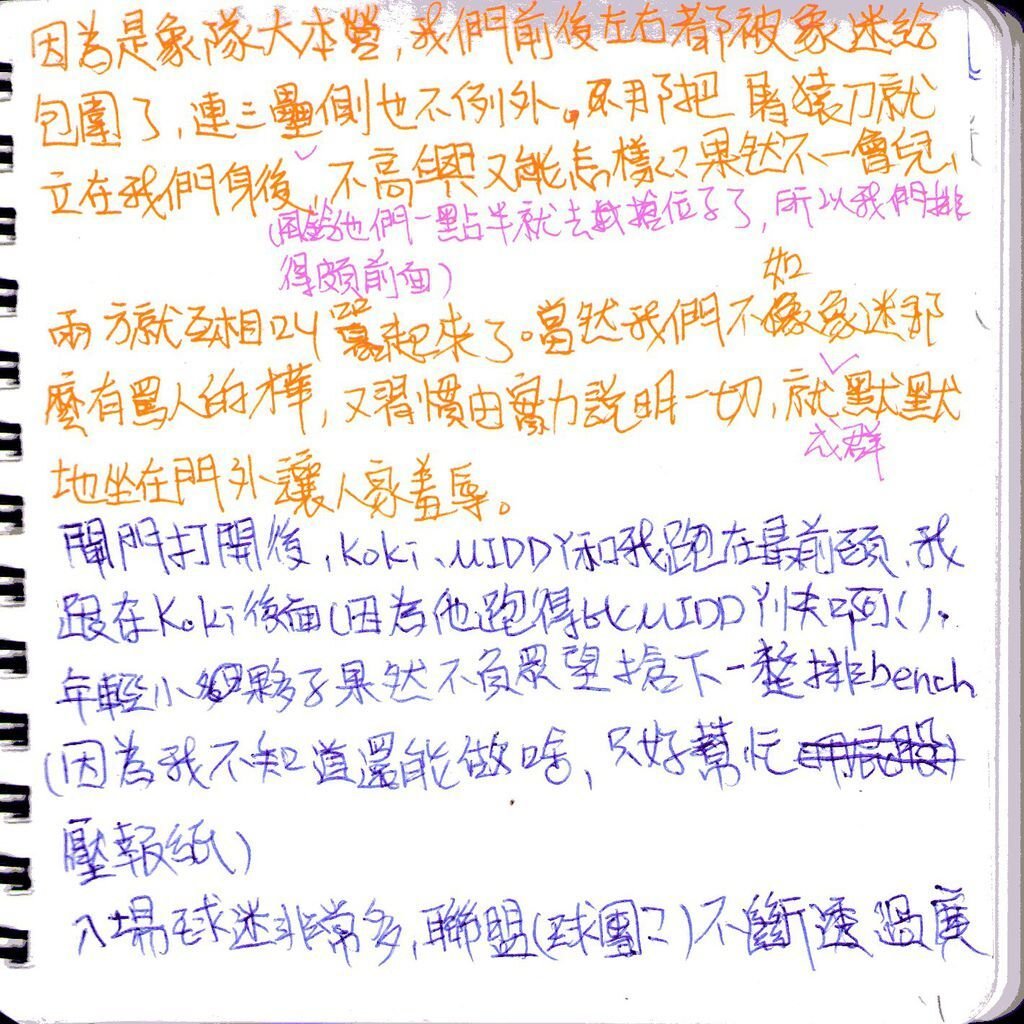 因為是象隊大本營,我們前後左右都被象迷給
包圍了,連三壘側也不例外。不用那把 賭猿刀就
立在我們身後,不高興又能怎樣?果然不一會兒、
(聽說他們一點半就去搶位子了,所以我們排
得頗前面)
如
兩方就互相叫罵起來了。當然我們不像象迷那
麼有罵人的樣,又習慣由實力說明一切,就默默
成群
地坐在門外讓人家羞辱。
閘門打開後,Koki、MIDDY和我跑在最前頭,我
跟在Koki後面(因為他跑得比MIDDY快啊!)。
年輕小夥子果然不負眾望搶下一整排bench
(因為我不知道還能做啥,只好幫忙
壓報紙)
入場球迷非常多,聯盟(球團?)不斷透過廣